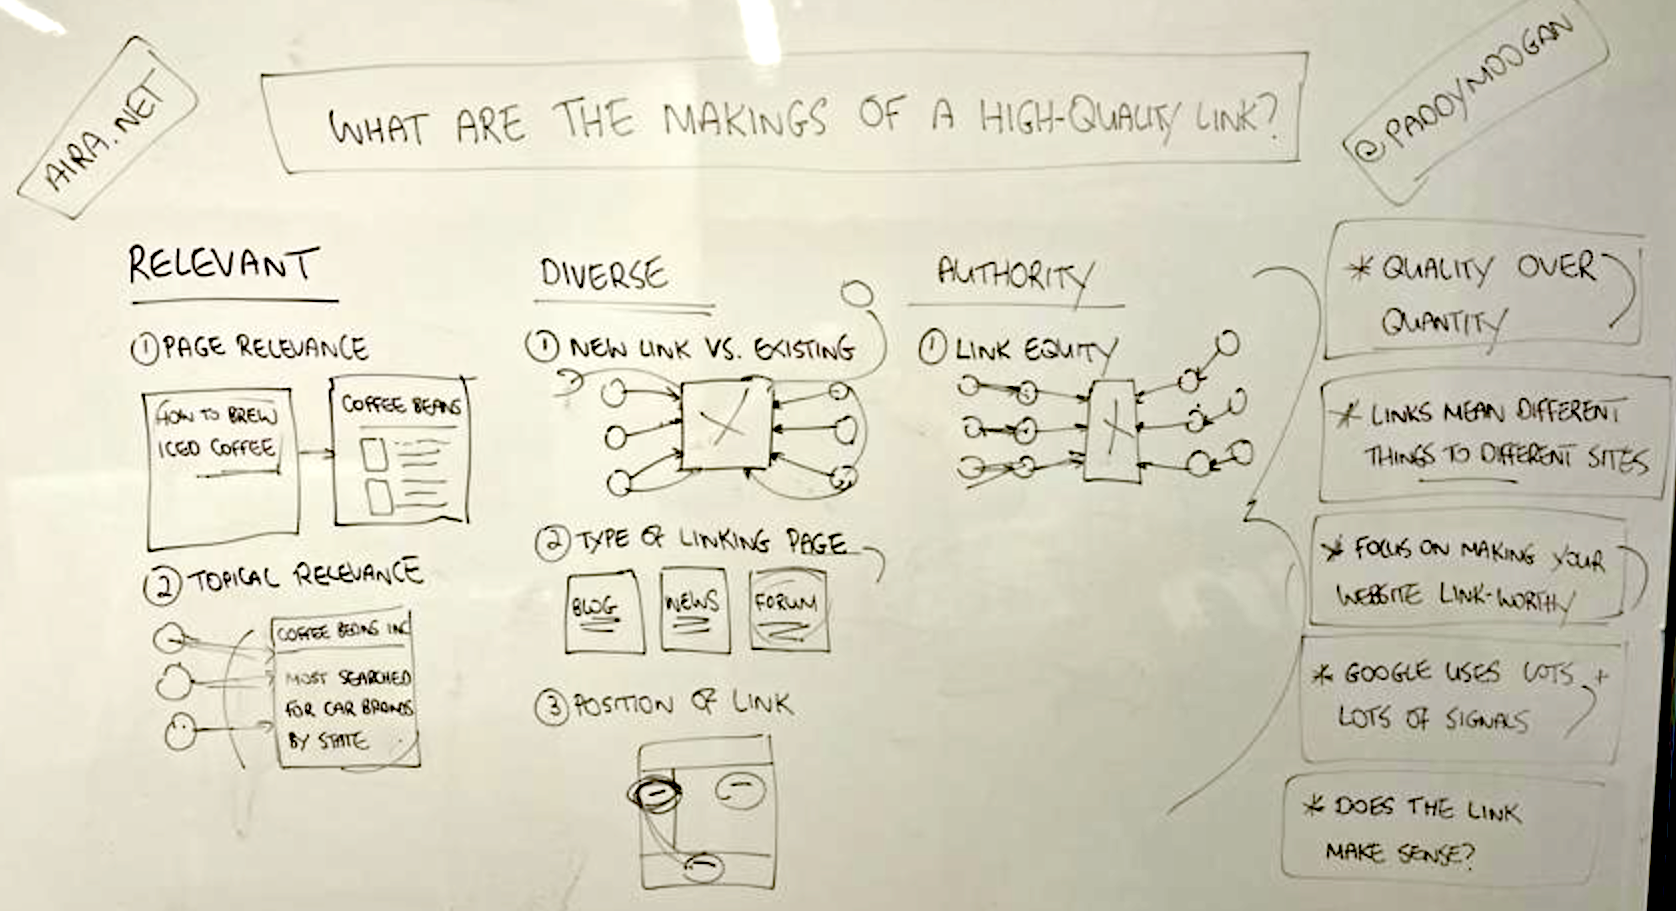 AIRA.NET
WHAT ARE THE MAKINGS OF A HIGH-QUALITY LINK?
@PADDYMOOGAN
RELEVANT
① PAGE RELEVANCE
HOW TO BREW
ICED COFFEE
COFFEE BEANS
② TOPICAL RELEVANCE
COFFEE BEANS INC
MOST SEARCHED
FOR CAR BRANDS
BY STATE
DIVERSE
① NEW LINK VS. EXISTING
X
② TYPE OF LINKING PAGE
BLOG
NEWS
FORUM
③ POSITION OF LINK
AUTHORITY
① LINK EQUITY
X
* QUALITY OVER
QUANTITY
* LINKS MEAN DIFFERENT
THINGS TO DIFFERENT SITES
* FOCUS ON MAKING YOUR
WEBSITE LINK-WORTHY
* GOOGLE USES LOTS +
LOTS OF SIGNALS
* DOES THE LINK
MAKE SENSE?